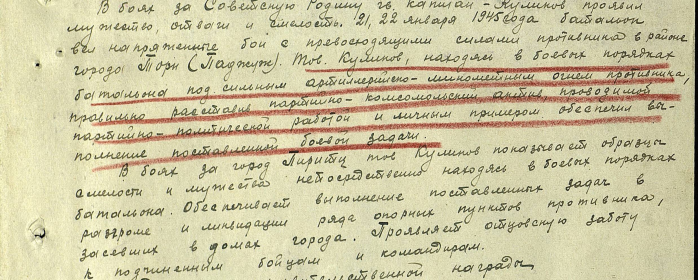 В боях за Советскую Родину гв капитан Куликов проявил
мужество, отвагу и смелость. 21, 22 января 1945 года батальон
вел напряженные бои с превосходящими силами противника в районе
города Торн (Ладжуж). Тов. Куликов, находясь в боевых порядках
батальона под сильным артиллерийско-минометным огнем противника,
правильно расставив партийно-комсомольский актив, проводимой
партийно-политической работой и личным примером обеспечил вы-
полнение поставленной боевой задачи.
В боях за город Пиритц тов Куликов показывает образцы
смелости и мужества непосредственно находясь в боевых порядках
батальона. Обеспечивает выполнение поставленных задач в
разгроме и ликвидации ряда опорных пунктов противника,
засевших в домах города. Проявляет отцовскую заботу
к подчиненным бойцам и командирам.
правительственной награды